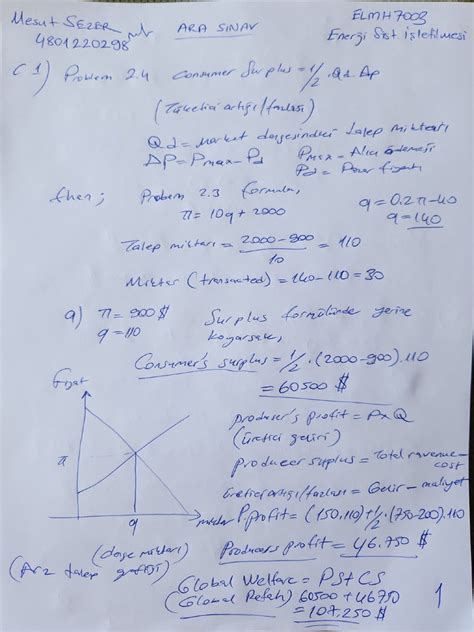 Mesut SEZER
4801220298
ARA SINAV
ELMH7003
Enerji Sist İşletilmesi
C1) Problem 2.4 Consumer Surplus = 1/2 . Qd . Δp
(Tüketici artığı/fazlası)
Qd = market dengesindeki talep miktarı
ΔP = Pmax - Pd
Pmax = Alıcı ödemesi
Pd = Pazar fiyatı
then; Problem 2.3 formula,
π = 10q + 2000
q = 0.2π - 40
q = 140
Talep miktarı = 2000 - 900 / 10 = 110
Miktar (transacted) = 140 - 110 = 30
a) π = 900 $
q = 110
Surplus formülünde yerine
koyarsak,
Consumer's surplus = 1/2 . (2000 - 900) . 110
= 60500 $
Fiyat
π
q
miktar
(denge miktarı)
(Arz talep grafiği)
producer's profit = P x Q
(üretici geliri)
producer surplus = Total revenue - cost
üretici artığı/fazlası = Gelir - maliyet
Pprofit = (150.110) + 1/2 . (750 - 200) . 110
Producers profit = 46.750 $
Global Welfare = PS + CS
(Global Refah) 60500 + 46750
= 107.250 $
1